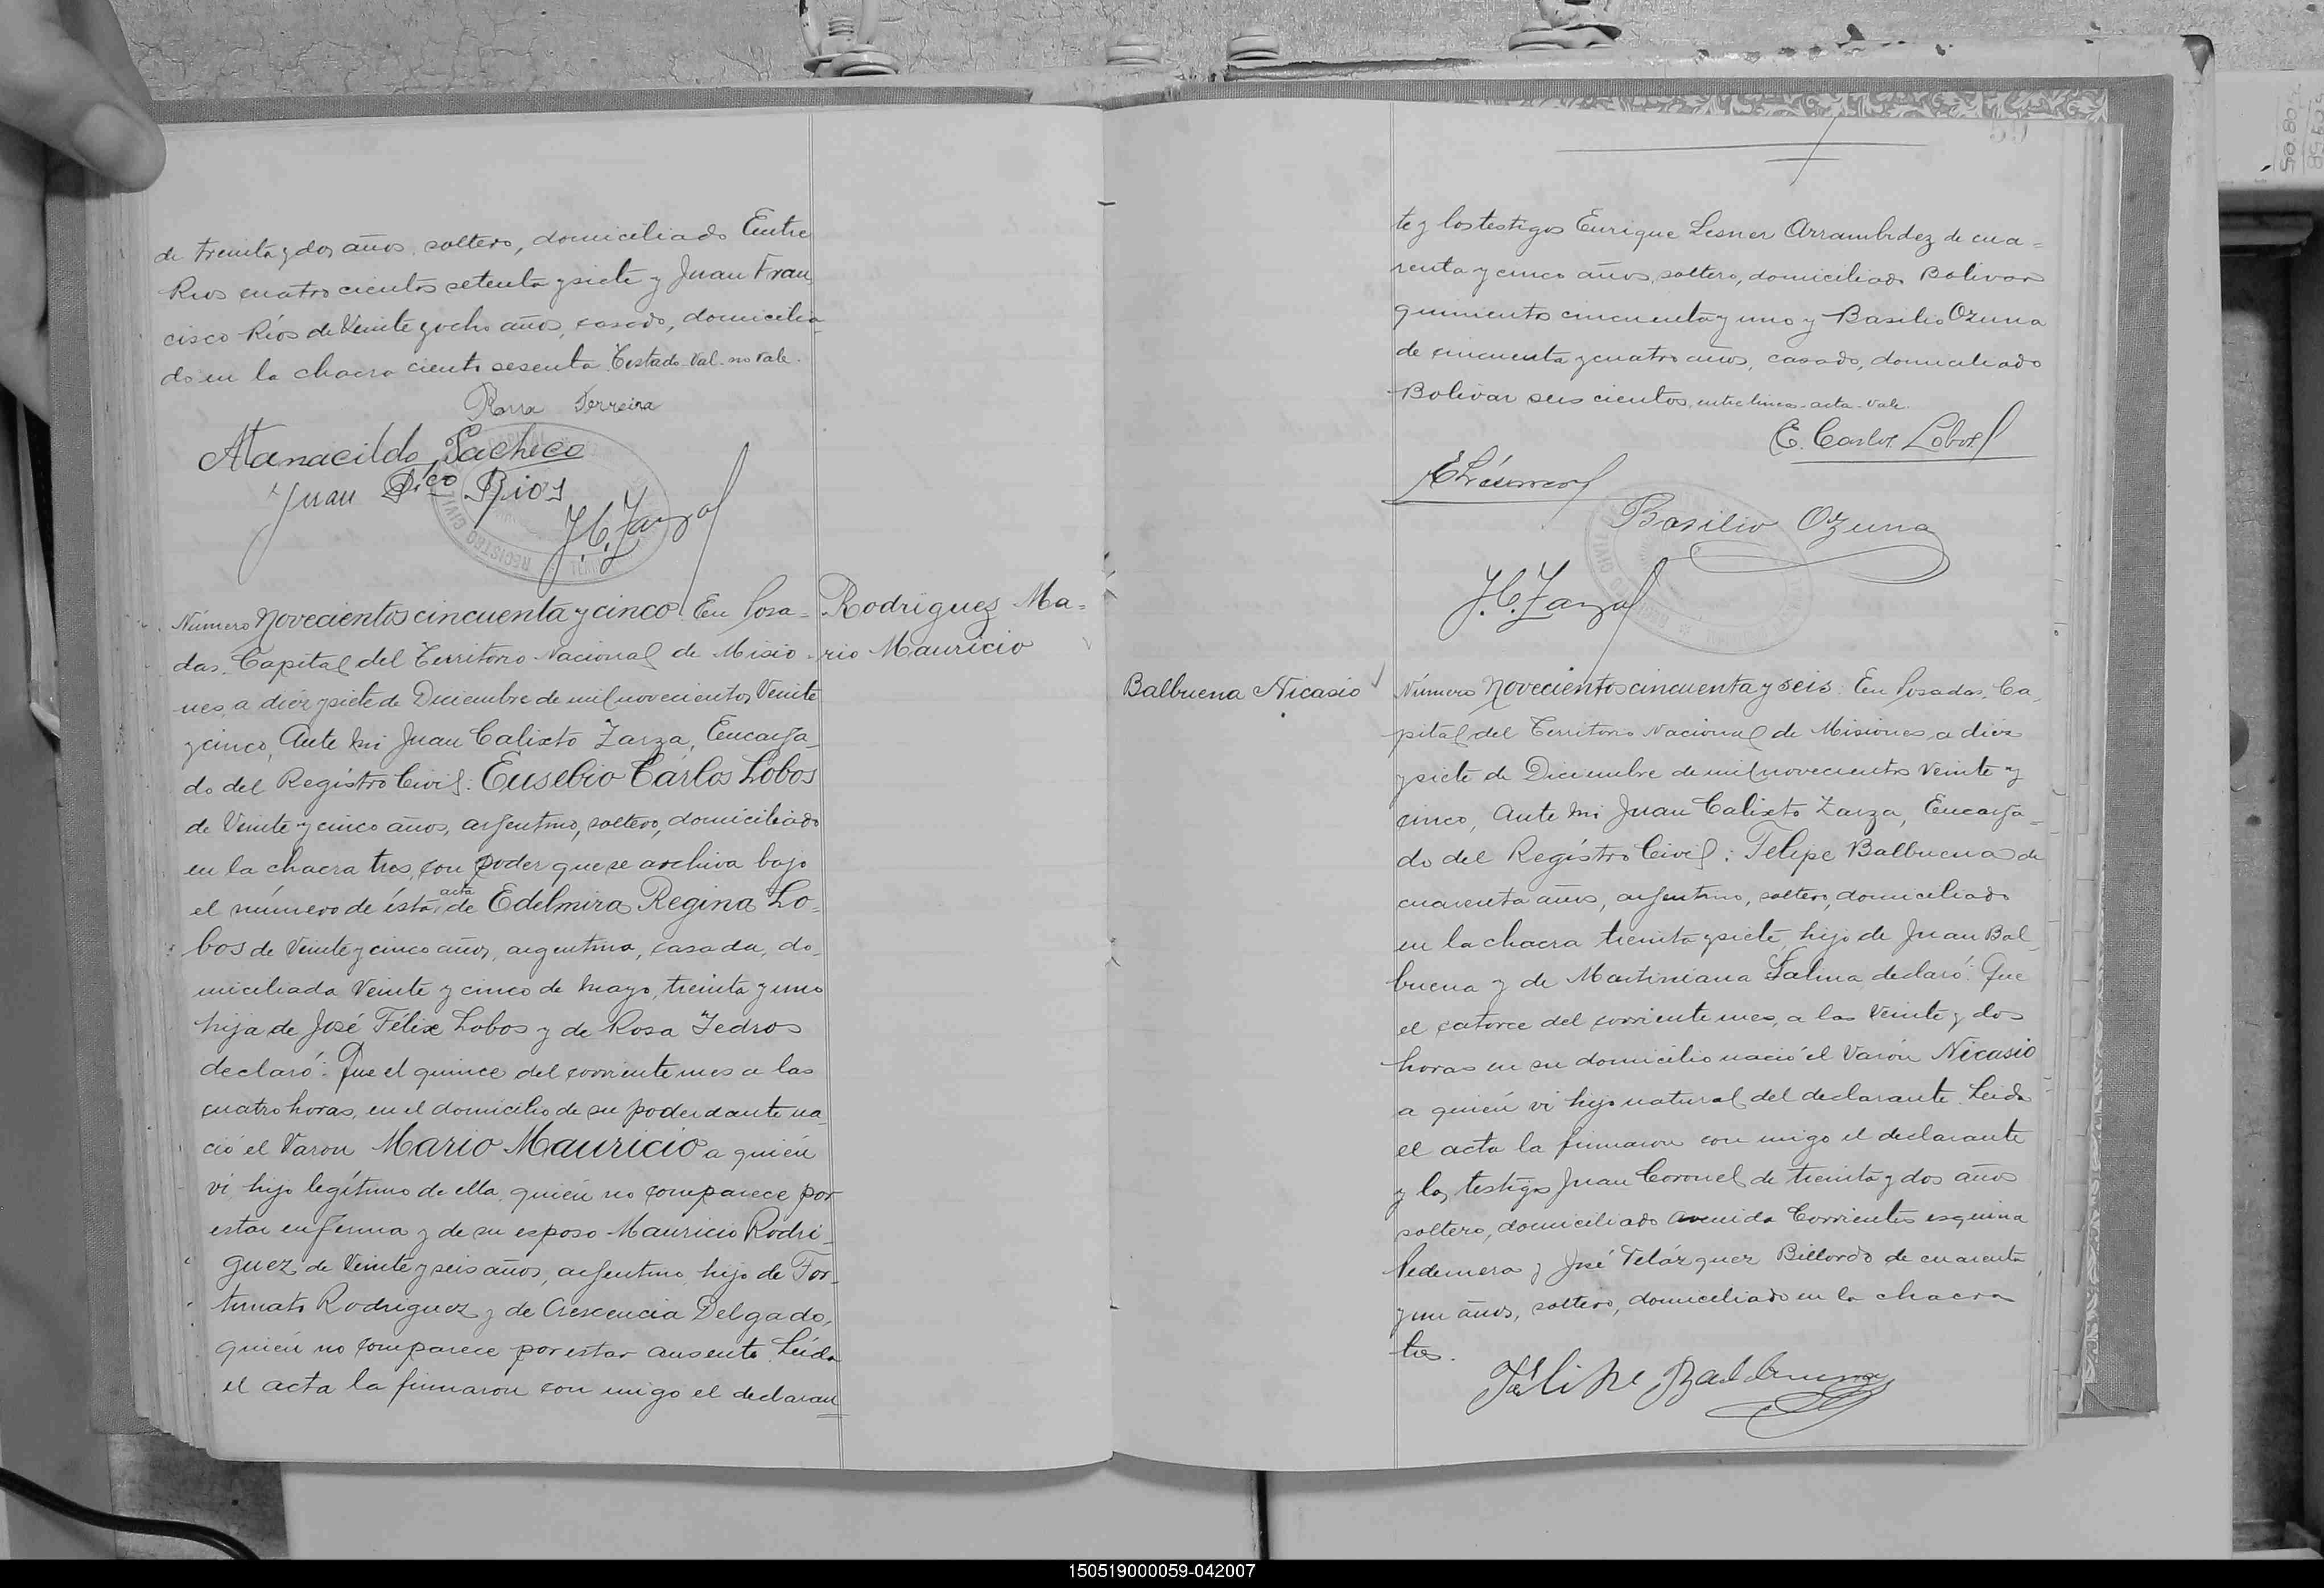 de treinta y dos años, soltero, domiciliado Entre
Rios cuatrocientos setenta y siete y Juan Fran
cisco Ríos de Veinte y ocho años, casado, domicilia
do en la chacra ciento sesenta. Testado-Val-no vale.
Rosa Ferreira
Atanacildo Pacheco
Juan Fco Rios
J.C. Zarza
Número Novecientos cincuenta y cinco. En Posa=
das, Capital del Territorio Nacional de Misio-
nes, a diez y siete de Diciembre de mil novecientos Veinte
y cinco, Ante mi Juan Calixto Zarza, Encarga-
do del Registro Civil: Eusebio Cárlos Lobos
de Veinte y cinco años, argentino, soltero, domiciliado
en la chacra tres, con poder que se archiva bajo
el número de ésta acta, de Edelmira Regina Lo-
bos de Veinte y cinco años, argentina, casada, do-
miciliada Veinte y cinco de Mayo, treinta y uno
hija de José Félix Lobos y de Rosa Tedros
declaró: Que el quince del corriente mes a las
cuatro horas, en el domicilio de su poderdante na-
ció el Varon Mario Mauricio a quién
ví hijo legítimo de ella, quién no comparece por
estar enferma y de su esposo Mauricio Rodri-
guez de Veinte y seis años, argentino, hijo de For-
tunato Rodriguez y de Crescencia Delgado,
quién no comparece por estar ausente. Leída
el acta la firmarón con migo el declaran
Rodriguez Ma=
rio Mauricio
59
te y los testigos Enrique Lesner Arrambidez de cua=
renta y cinco años, soltero, domiciliado Bolivar
quinientos cincuenta y uno y Basilio Ozuna
de cincuenta y cuatro años, casado, domiciliado
Bolivar seis cientos, entre lineas-acta-Vale.
E. Carlos Lobos
Basilio Ozuna
J.C. Zarza
Balbuena Nicasio
Número Novecientos cincuenta y seis: En Posadas, Ca-
pital del Territorio Nacional de Misiones, a diez
y siete de Diciembre de mil novecientos Veinte y
cinco, Ante mi Juan Calixto Zarza, Encarga=
do del Registro Civil: Felipe Balbuena de
cuarenta años, argentino, soltero, domiciliado
en la chacra treinta y siete, hijo de Juan Bal-
buena y de Martiniana Salina, declaró: Que
el catorce del corriente mes, a las Veinte y dos
horas en su domicilio nació el Varón Nicasio
a quién vi hijo natural del declarante. Leida
el acta la firmaron con migo el declarante
y los testigos Juan Coronel de treinta y dos años
soltero, domiciliado Avenida Corrientes esquina
Pedernera y José Velázquez Billordo de cuarenta
y un años, soltero, domiciliado en la chacra
tres.
Felipe Balbuena
150519000059-042007